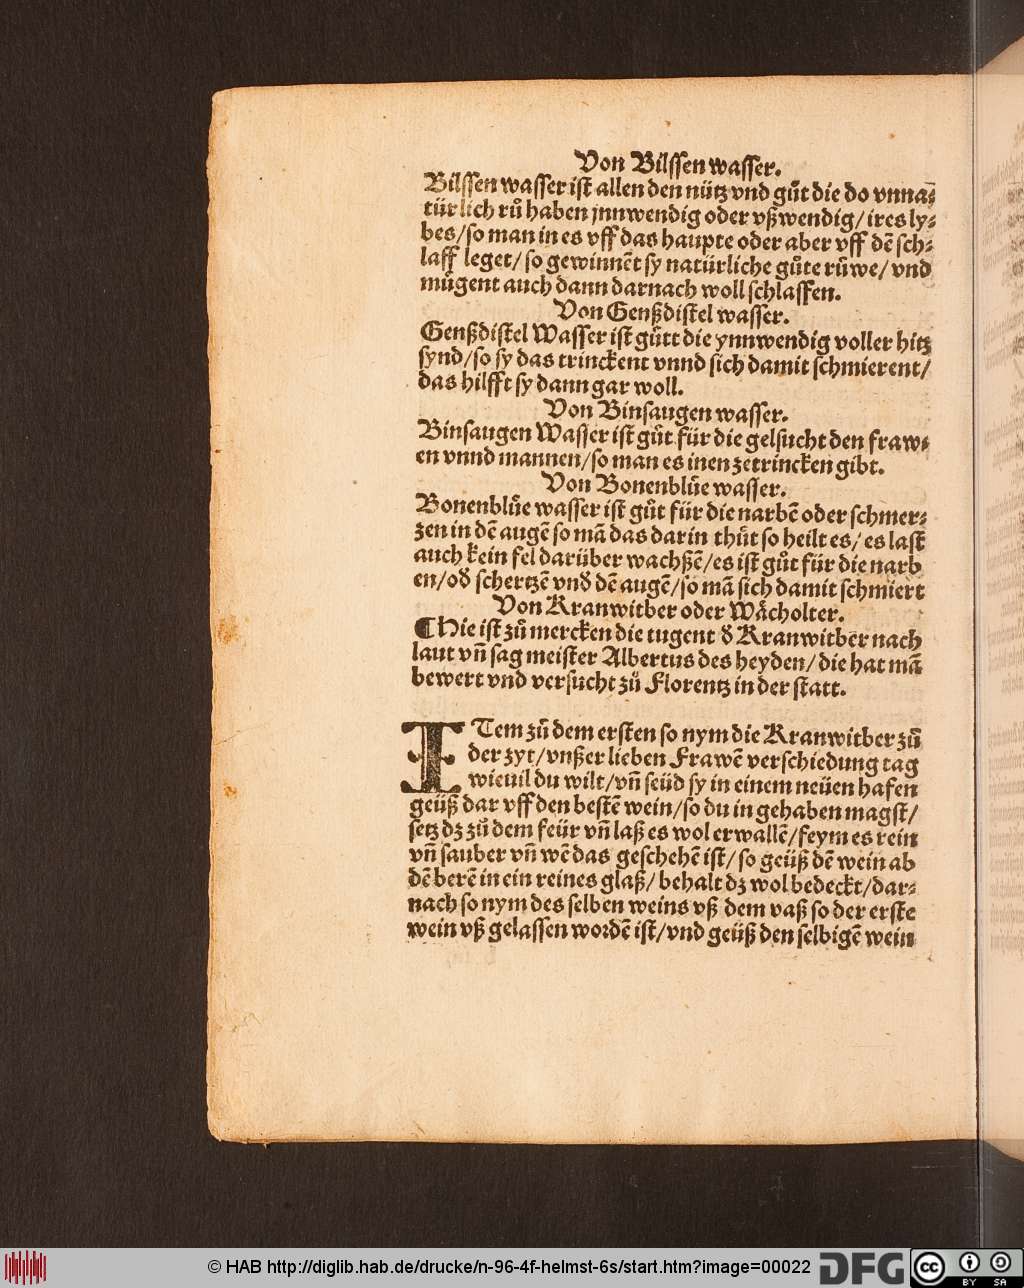 Von Bilſſen waſſer.
Bilſſen waſſer iſt allen den nütz vnd gůt die do vnna⸗
türlich rů haben jnnwendig oder vßwendig/ ires ly⸗
bes/ſo man in es vff das haupte oder aber vff dē ſch⸗
laff leget/ ſo gewinnēt ſy natürliche gůte růwe/ vnd
mügent auch dann darnach woll ſchlaffen.
Von Genßdiſtel waſſer.
Genßdiſtel Waſſer iſt gůtt die ynnwendig voller hitz
ſynd/ſo ſy das trinckent vnnd ſich damit ſchmierent/
das hilfft ſy dann gar woll.
Von Binſaugen waſſer.
Binſaugen Waſſer iſt gůt für die gelſucht den fraw⸗
en vnnd mannen/ſo man es inen zetrincken gibt.
Von Bonenblůe waſſer.
Bonenblůe waſſer iſt gůt für die narbē oder ſchmer⸗
zen in dē augē ſo mā das darin thůt ſo heilt es/ es laſt
auch kein fel darüber wachßē/es iſt gůt für die narb
en/od̕ ſchertzē vnd̕ dē augē/ſo mā ſich damit ſchmiert
Von Kranwitber oder Wåcholter.
¶Hie iſt zů mercken die tugent d̕ Kranwitber nach
laut vñ ſag meiſter Albertus des heyden/ die hat mā
bewert vnd verſucht zů Florentz in der ſtatt.
ITem zů dem erſten ſo nym die Kranwitber zů
der zyt/vnßer lieben Frawē verſchiedung tag
wieuil du wilt/vñ ſeüd ſy in einem neüen hafen
geüß dar vff den beſtē wein/ſo du in gehaben magſt/
ſetz dz zů dem feür vñ laß es wol erwallē/feym es rein
vñ ſauber vñ wē das geſchehē iſt/ ſo geüß dē wein ab
dē berē in ein reines glaß/ behalt dz wol bedeckt/dar⸗
nach ſo nym des ſelben weins vß dem vaß ſo der erſte
wein vß gelaſſen wordē iſt/vnd geüß den ſelbigē wein
© HAB http://diglib.hab.de/drucke/n-96-4f-helmst-6s/start.htm?image=00022
DFG
cc
BY SA